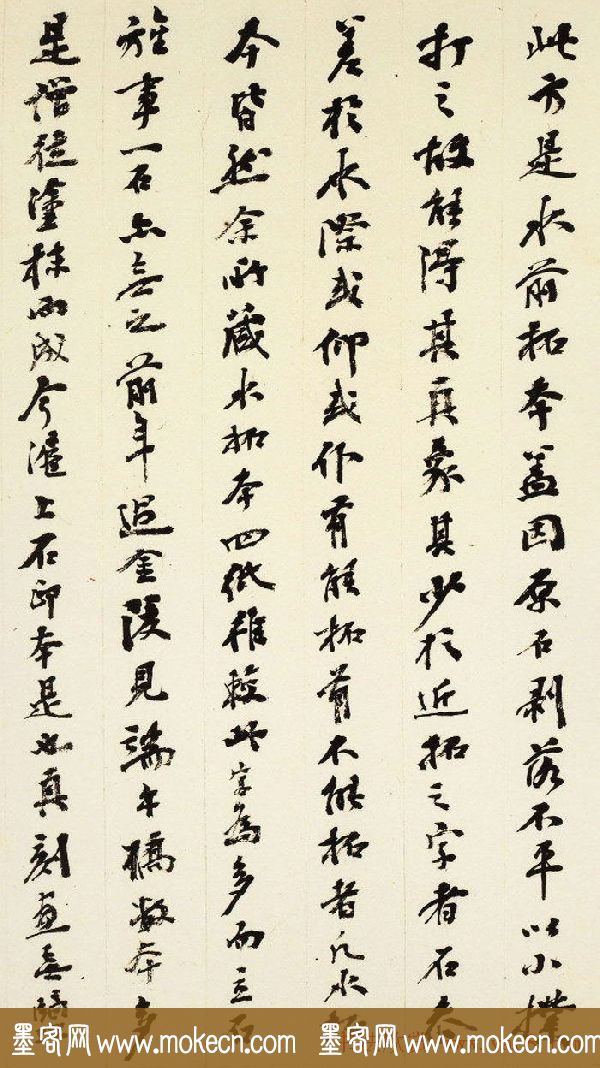 此方是水前拓本蓋因原石剥落不平以小撲
打之故能得其真象其少於近拓之字者石參
差於水際或仰或仆有能拓有不能拓者凡水拓
本皆然余所藏水拓本四紙雖較此字為多而立石
旌事一石亦無之前年過金陵見端午橋數本多
是僧徒塗抹而成今滬上石印本是也真刻
墨客网 www.mokecn.com 墨客网 www.mokecn.com